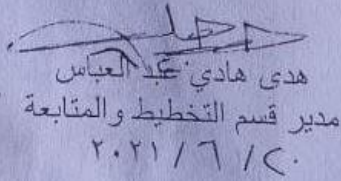 هدى هادي عبد العباس
مدير قسم التخطيط والمتابعة
٢٠٢١ / ٦ / ٢٠